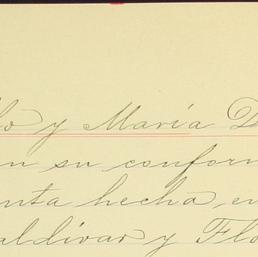 lo y María D
n su conform
nta hecha, en
aldivar y Flo